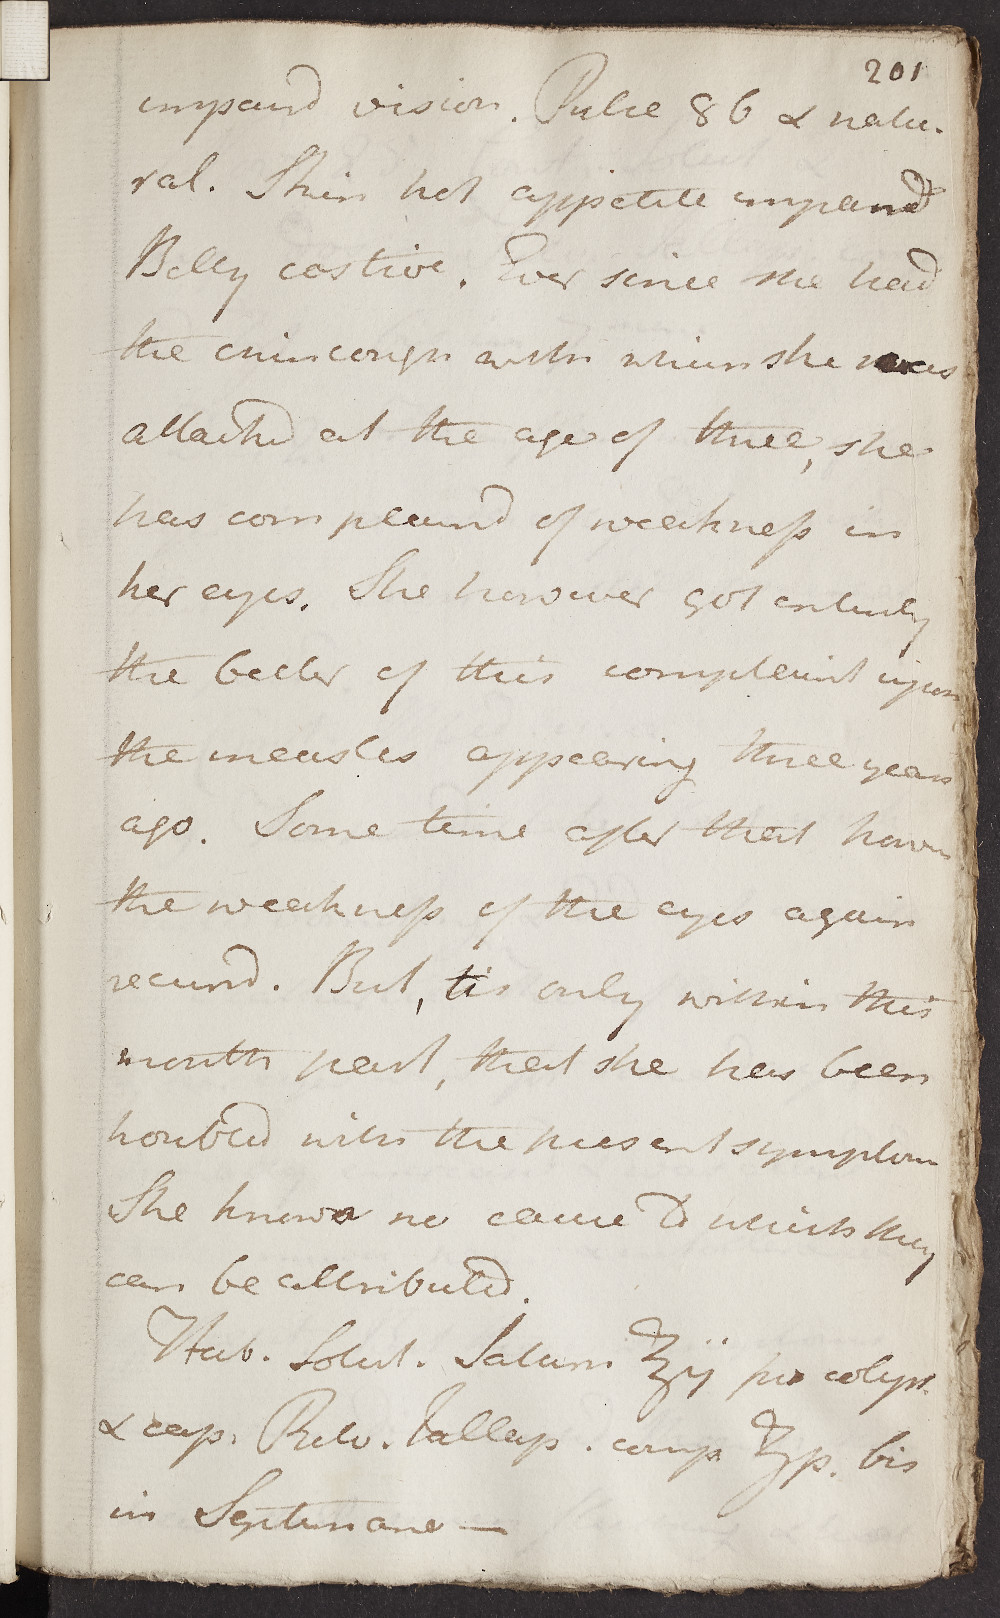 201
impaird vision. Pulse 86 & natu-
ral. Skin hot appetite impaird
Belly costive. Ever since she had
the chincough with which she was
attackd at the age of three, she
has complaind of weakness in
her eyes. She however got entirely
the better of this complaint upon
the measles appearing three years
ago. Some time after that howr
the weakness of the eyes again
recurrd. But, tis only within this
month past, that she has been
troubled with the present symptom
She knows no cause to which they
can be attributed.
Hab. Solut. Saturn ℥ij pro colyr.
& cap. Pulv. Jallap. comp ʒp. bis
in Septimane —